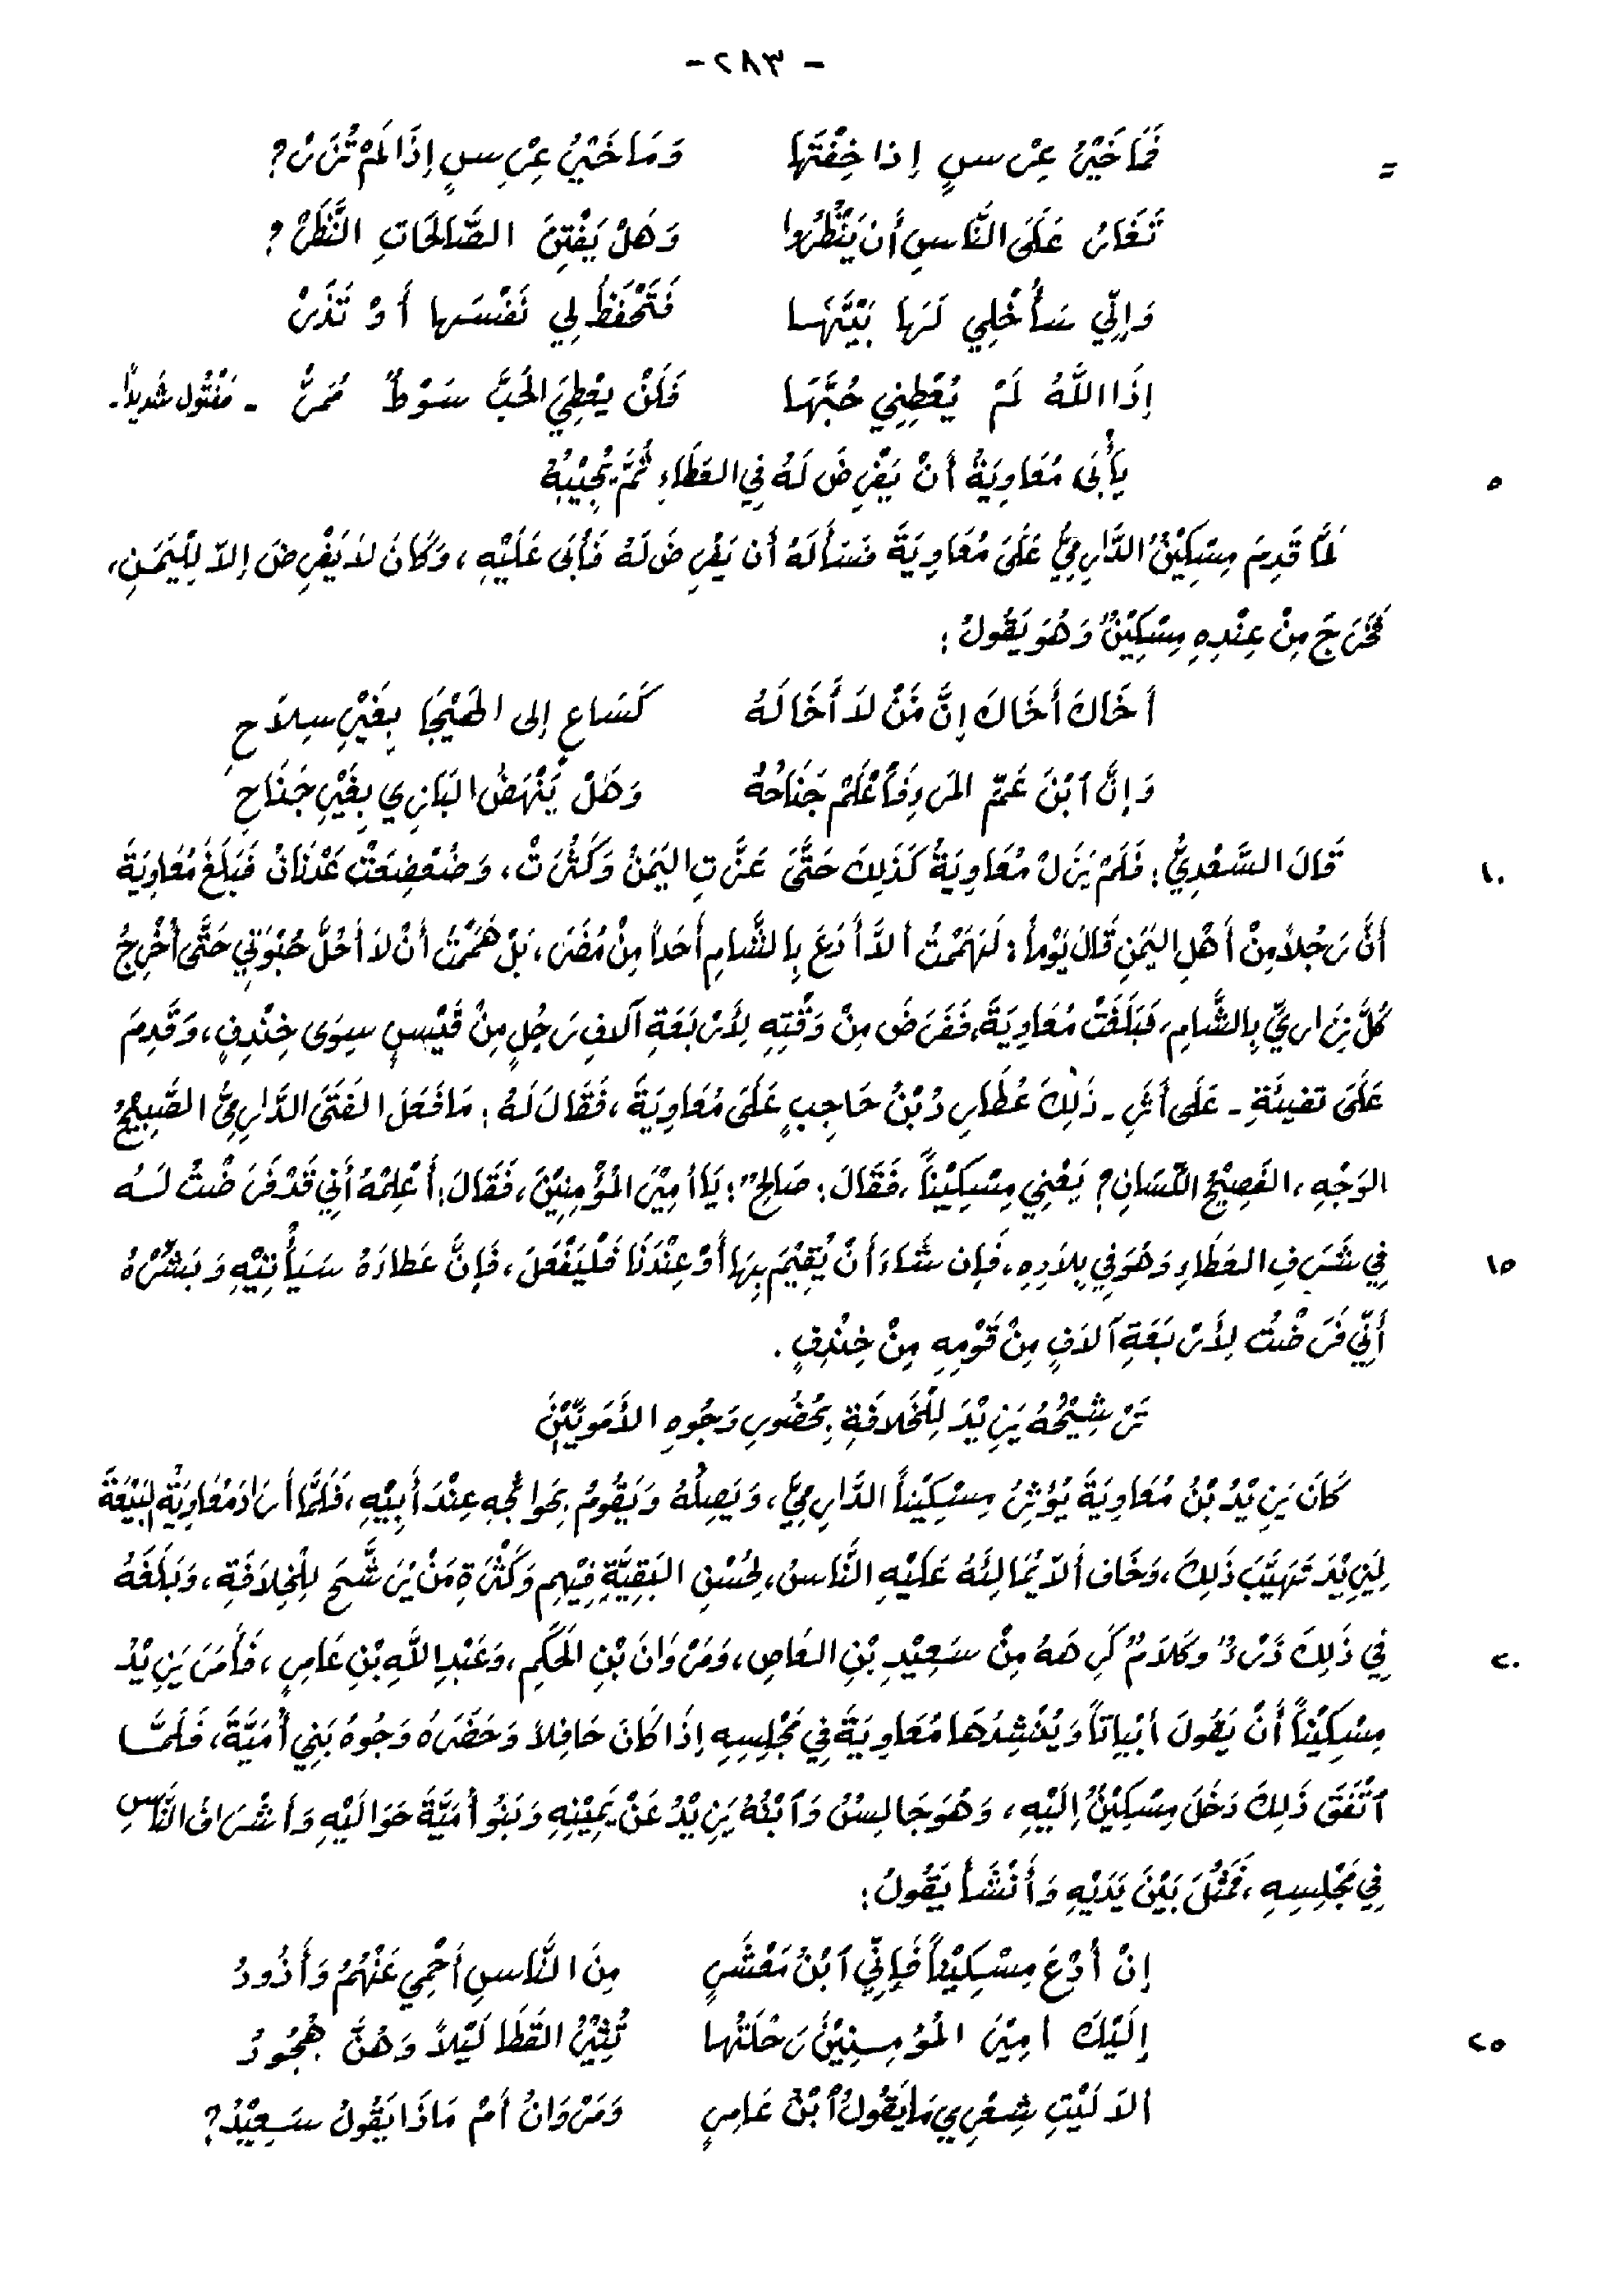 - ٢٨٣ -
= فَمَا خَيْرُ عِرْسٍ إذا خِفْتَهَا وَمَا خَيْرُ عِرْسٍ إذَا لَمْ تُزَرْ؟
تَغَارُ عَلَى النَّاسِ أَن يَنْظُرُوا وَهَلْ يَفْتِنُ الصَّالِحَاتِ النَّظَرْ؟
وَإنِّي سَأُخْلِي لَهَا بَيْتَهَا فَتَحْفَظُ لِي نَفْسَها أَوْ تَذَرْ
إذَا اللَّهُ لَمْ يُعْطِنِي حُبَّهَا فَلَنْ يعْطِيَ الحُبَّ سَوْطٌ مُمَرّْ - مَفْتُول شَديداً -
٥ يَأْبَى مُعَاوِيَةُ أَنْ يَفْرِضَ لَهُ فِي العَطَاءِ ثُمَّ يُجِيْبُهُ
لمَّا قَدِمَ مِسْكِيْنٌ الدَّارِمِيُّ عَلَى مُعَاوِيَةَ فَسَأَلَهُ أَن يَفْرِضَ لَهُ فَأَبَى عَلَيْهِ، وَكَانَ لاَ يَفْرِضُ إلاّ لِلْيَمَنِ،
فَخَرَجَ مِنْ عِنْدِهِ مِسْكِيْنٌ وَهُوَ يَقُولُ:
أَخَاكَ أَخَاكَ إنَّ مَنْ لاَ أَخَا لَهُ كَسَاعٍ إلى الهَيْجَا بِغَيْرِ سِلاَحِ
وَإنَّ ٱبْنَ عَمِّ المَرءِ فَٱعْلَمْ جَنَاحُهُ وَهَلْ يَنْهَضُ البَازِي بِغَيْرِ جَنَاحِ
١٠ قَالَ السَّعْدِيُّ: فَلَمْ يَزَلْ مُعَاوِيَةُ كَذَلِكَ حَتَّى عَزَّتِ اليَمَنُ وَكَثُرَتْ، وَضُعْضِعَتْ عَدْنَانُ فَبَلَغَ مُعَاوِيَةَ
أَنَّ رَجُلاً مِنْ أَهْلِ اليَمَنِ قَالَ يَوْماً: لَهَمَمْتُ ألاَّ أَدَعَ بِالشَّامِ أَحَداً مِنْ مُضَرَ، بَلْ هَمَمْتُ أَنْ لاَ أَحُلَّ حُبْوَتِي حَتَّى أُخْرِجُ
كُلَّ نِزَارِيٍّ بِالشَّامِ، فَبَلَغَتْ مُعَاوِيَةَ، فَفَرَضَ مِنْ وَقْتِهِ لِأَرْبَعَةِ آلافِ رَجُلٍ مِنْ قَيْسٍ سِوَى خِنْدِفٍ، وَقَدِمَ
عَلَى تفيئَةِ - عَلَى أَثَرِ - ذَلِكَ عُطَارِدُ بْنُ حَاجِبٍ عَلَى مُعَاوِيَةَ، فَقَالَ لَهُ: مَا فَعَلَ الفَتَى الدَّارِمِيُّ الصَّبِيْحُ
الوَجْهِ، الفَصِيْحُ اللِّسَانِ؟ يَعْنِي مِسْكِيْناً، فَقَالَ: صَالِحٌ؛ يَا أَمِيْرَ المُؤْمِنِيْنَ، فَقَالَ: أَعْلِمْهُ أَنِّي قَدْ فَرَضْتُ لَهُ
١٥ فِي شَرَفِ العَطَاءِ وَهُوَ فِي بِلاَدِهِ، فَإن شَاءَ أَنْ يُقِيْمَ بِهَا أَوْ عِنْدَنَا فَلْيَفْعَلْ، فَإنَّ عَطَاءَهُ سَيَأْتِيْهِ وَبَشِّرْهُ
أَنِّي فَرَضْتُ لِأَرْبَعَةِ آلاَفٍ مِنْ قَوْمِهِ مِنْ خِنْدِفٍ.
تَرْشِيْحُهُ يَزِيْدَ لِلْخَلافَةِ بِحُضُورِ وُجُوهِ الأُمَوِيِّيْنَ
كَانَ يَزِيْدُ بْنُ مُعَاوِيَةَ يُؤْثِرُ مِسْكِيْناً الدَّارِمِيَّ، وَيَصِلُهُ وَيَقُومُ بِحَوَائِجِهِ عِنْدَ أَبِيْهِ، فَلَمَّا أَرَادَ مُعَاوِيَةُ البَيْعَةَ
لِيَزِيْدَ تَهَيَّبَ ذَلِكَ، وَخَافَ أَلاّ يُمَالِئَهُ عَلَيْهِ النَّاسُ، لِحُسْنِ البَقِيَّةِ فِيْهِم وَكَثْرَةِ مَنْ يُرَشَّحُ لِلْخِلاَفَةِ، وَبَلَغَهُ
٢٠ فِي ذَلِكَ ذَرْءٌ وَكَلاَمٌ كَرِهَهُ مِنْ سَعِيْدِ بْنِ العَاصِ، وَمَرْوَانَ بْنِ الحَكَمِ، وَعَبْدِ اللَّهِ بْنِ عَامِرٍ، فَأَمَرَ يَزِيْدُ
مِسْكِيْناً أَنْ يَقُولَ أَبْيَاتاً وَيُنْشِدَهَا مُعَاوِيَةَ فِي مَجْلِسِهِ إذَا كَانَ حَافِلاً وَحَضَرَهُ وُجُوهُ بَنِي أُمَيَّةَ، فَلَمَّا
ٱتَّفَقَ ذَلِكَ دَخَلَ مِسْكِيْنٌ إلَيْهِ، وَهُوَ جَالِسٌ وَٱبْنُهُ يَزِيْدُ عَنْ يَمِيْنِهِ وَبَنُو أُمَيَّةَ حَوَالَيْهِ وَأَشْرَافُ النَّاسِ
فِي مَجْلِسِهِ، فَمَثَلَ بَيْنَ يَدَيْهِ وَأَنْشَأَ يَقُولُ:
إنْ أُدْعَ مِسْكِيْناً فَإنِّي ٱبْنُ مَعْشَرٍ مِنَ النَّاسِ أَحْمِي عَنْهُمُ وَأَذُودُ
٢٥ إلَيْكَ أمِيْرَ المُؤمِنِيْنَ رَحَلْتُها تُثِيْرُ القَطَا لَيْلاً وَهُنَّ هُجُودُ
ألاَ لَيْتَ شِعْرِي مَا يَقُولُ ٱبْنُ عَامِرٍ وَمَرْوَانُ أَمْ مَاذَا يَقُولُ سَعِيْدُ؟